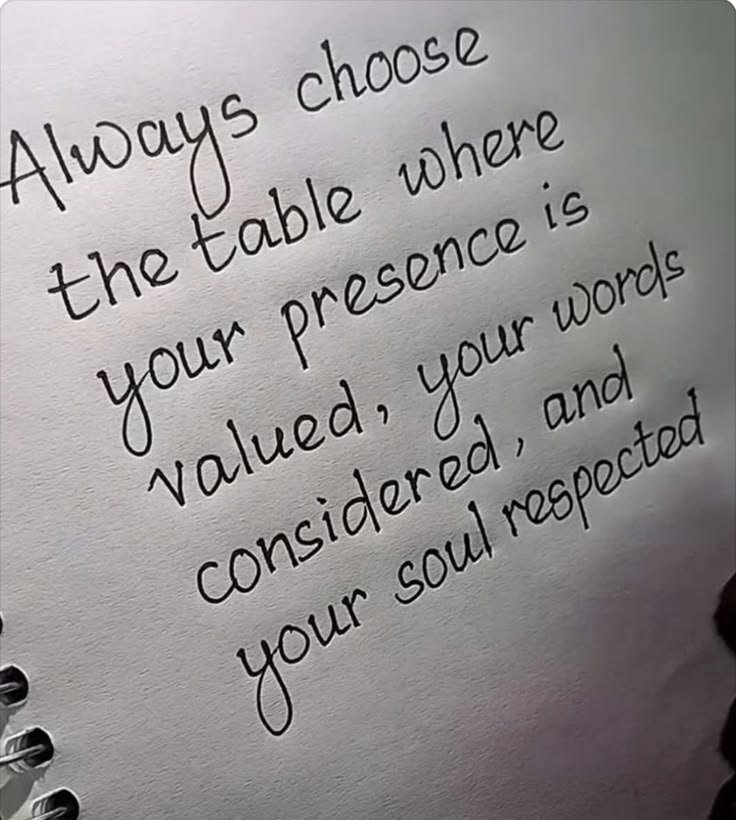 Always choose
the table where
your presence is
valued, your words
considered, and
your soul respected